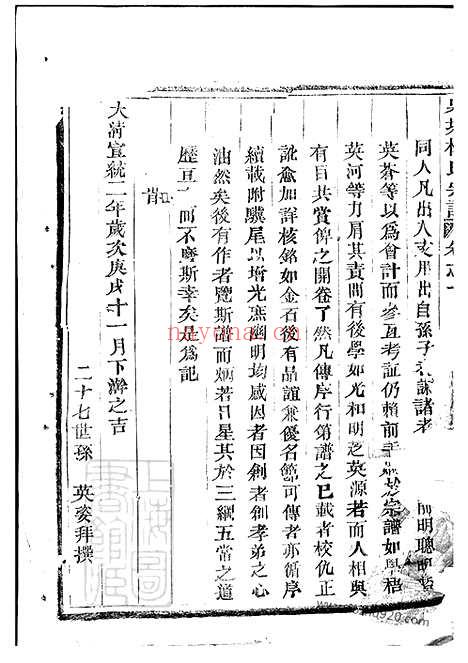 同人凡出入支用出自孫子 謀諸者 前明聰
英蒼等以為會計而參互考証仍賴前 宗譜如學梧
英河等力肩其責間有後學如光和明芝英源若而人相與
有目共賞俾之開卷了然凡傳序行第譜之已載者校仇正
訛愈加詳核銘如金石後有品誼兼優名節可傳者亦循序
續載附驥尾以增光庶幽明均感因者因創者創孝弟之心
油然矣後有作者覽斯譜而炳若日星其於三綱五常之道
歷亘 而不磨斯幸矣是為記
大清宣統二年歲次庚戌十一月下澣之吉
二十七世孫 英姿拜撰